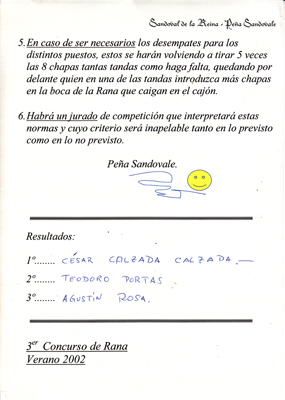 Sandoval de la Reina - Peña Sandovale
5. En caso de ser necesarios los desempates para los
distintos puestos, estos se harán volviendo a tirar 5 veces
las 8 chapas tantas tandas como haga falta, quedando por
delante quien en una de las tandas introduzca más chapas
en la boca de la Rana que caigan en el cajón.
6. Habrá un jurado de competición que interpretará estas
normas y cuyo criterio será inapelable tanto en lo previsto
como en lo no previsto.
Peña Sandovale.
Resultados:
1º........ CÉSAR CALZADA CALZADA.—
2º........ TEODORO PORTAS.
3º........ AGUSTÍN ROSA.
3er Concurso de Rana
Verano 2002